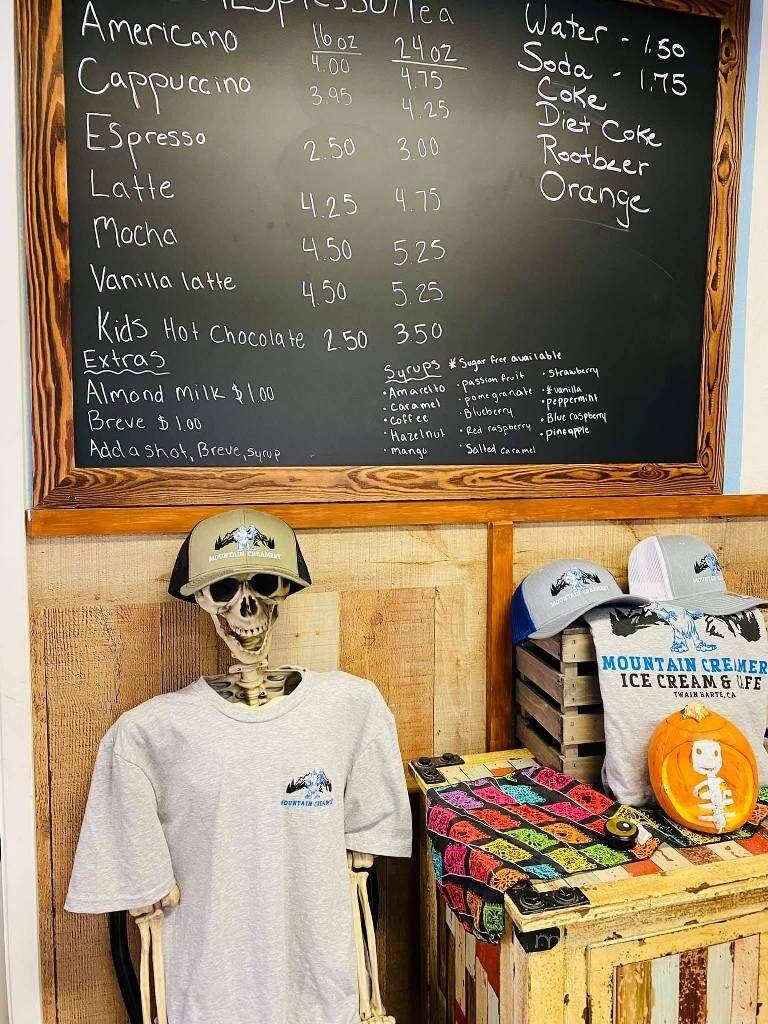 Espresso/Tea
16 oz 24 oz
Americano 4.00 4.75
Cappuccino 3.95 4.25
Espresso 2.50 3.00
Latte 4.25 4.75
Mocha 4.50 5.25
Vanilla latte 4.50 5.25
Kids Hot Chocolate 2.50 3.50
Water - 1.50
Soda - 1.75
Coke
Diet Coke
Rootbeer
Orange
Extras
Almond milk $1.00
Breve $1.00
Add a shot, Breve, syrup
Syrups * Sugar free available
• Amaretto
• caramel
• coffee
• Hazelnut
• mango
• passion fruit
• pomegranate
• Blueberry
• Red raspberry
• Salted caramel
• strawberry
• * vanilla
• peppermint
• Blue raspberry
• pineapple
MOUNTAIN CREAMERY
MOUNTAIN CREAMERY
MOUNTAIN CREAMERY
MOUNTAIN CREAMER
ICE CREAM & CAFE
TWAIN HARTE, CA
MOUNTAIN CREAMERY